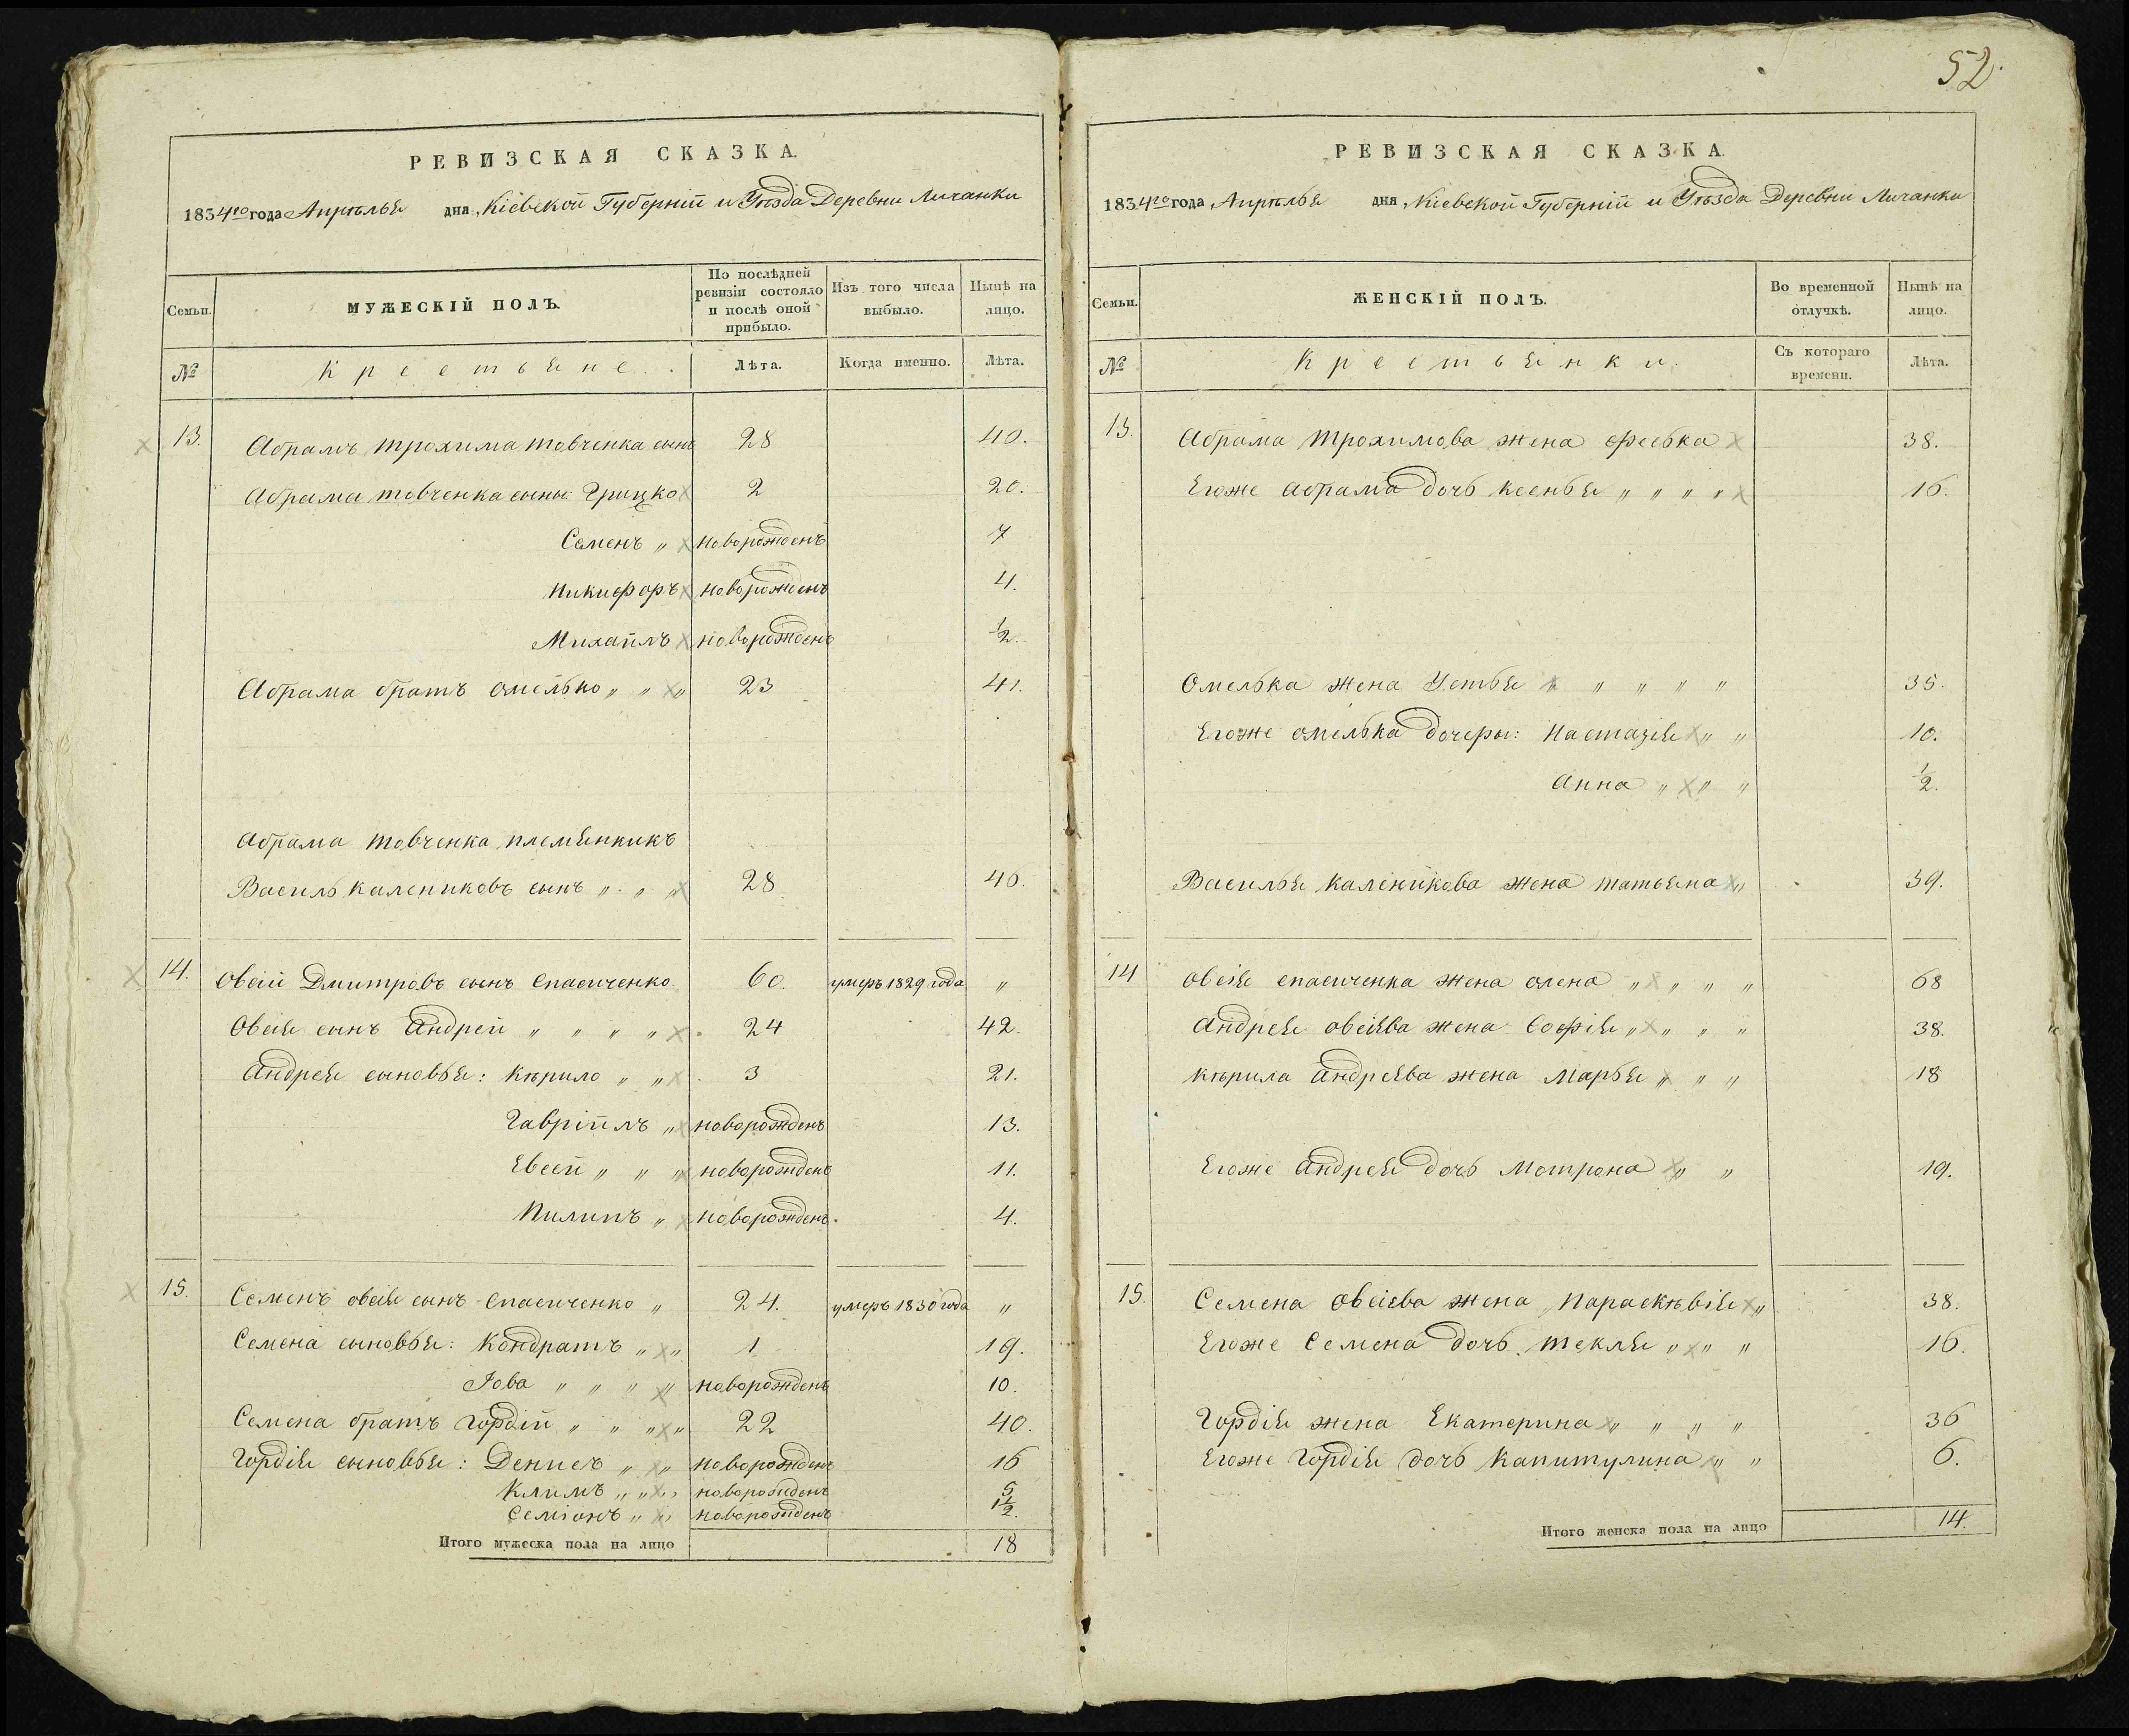 52.
РЕВИЗСКАЯ СКАЗКА.
1834го года Апрѣлья дня, Кіевской Губерніи и Уѣзда Деревни Личанки
Семьи.
МУЖЕСКІЙ ПОЛЪ.
По послѣдней ревизіи состояло и послѣ оной прибыло.
Изъ того числа выбыло.
Нынѣ на лицо.
№
Крестьяне
Лѣта.
Когда именно.
Лѣта.
13. Абрамъ Трохима Товченка сынъ 28 40.
Абрама Товченка сыны: Грицко 2 20.
Семенъ „ новорожденъ 7
Никифоръ новорожденъ 4.
Михаилъ новорожденъ 1/2.
Абрама братъ Омелько „ „ „ 23 41.
Абрама Товченка племянникъ
Василь Калениковъ сынъ „ „ „ 28 40.
14. Овсій Дмитровъ сынъ Спасиченко 60. умеръ 1829 года „
Овсія сынъ Андрей „ „ „ „ 24 42.
Андрея сыновья: Кѣрило „ „ 3 21.
Гавріилъ „ новорожденъ 13.
Евсей „ „ „ новорожденъ 11.
Пилипъ „ новорожденъ. 4.
15. Семенъ Овсія сынъ Спасиченко „ 24. умеръ 1830 года „
Семена сыновья: Кондратъ „ „ 1 19.
Іова „ „ „ „ новорожденъ 10.
Семена братъ Гордій „ „ „ „ 22 40.
Гордія сыновья: Денисъ „ „ новорожденъ 16
Климъ „ „ „ новорожденъ 5
Семіонъ „ „ новорожденъ 1 1/2.
Итого мужеска пола на лицо 18
РЕВИЗСКАЯ СКАЗКА.
1834го года Апрѣлья дня, Кіевской Губерніи и Уѣзда Деревни Личанки
Семьи.
ЖЕНСКІЙ ПОЛЪ.
Во временной отлучкѣ.
Нынѣ на лицо.
№
Крестьянки.
Съ котораго времени.
Лѣта.
13. Абрама Трохимова жена Феська 38.
Егоже Абрама дочь Ксенья „ „ „ „ 16.
Омелька жена Устья „ „ „ „ „ 35.
Егоже Омелька дочеры: Настазія „ „ 10.
Анна „ „ „ 1/2.
Василья Каленикова жена Татьяна „ 39.
14 Овсія Спасиченка жена Олена „ „ „ „ 68
Андрея Овсіява жена Софія „ „ „ „ 38.
Кѣрила Андреява жена Марья „ „ „ 18
Егоже Андрея дочь Мотрона „ „ 19.
15. Семена Овсіева жена Параскѣвія „ 38.
Егоже Семена дочь Текля „ „ „ 16.
Гордія жена Екатерина „ „ „ „ 36
Егоже Гордія дочь Капитулина „ „ 6.
Итого женска пола на лицо 14.